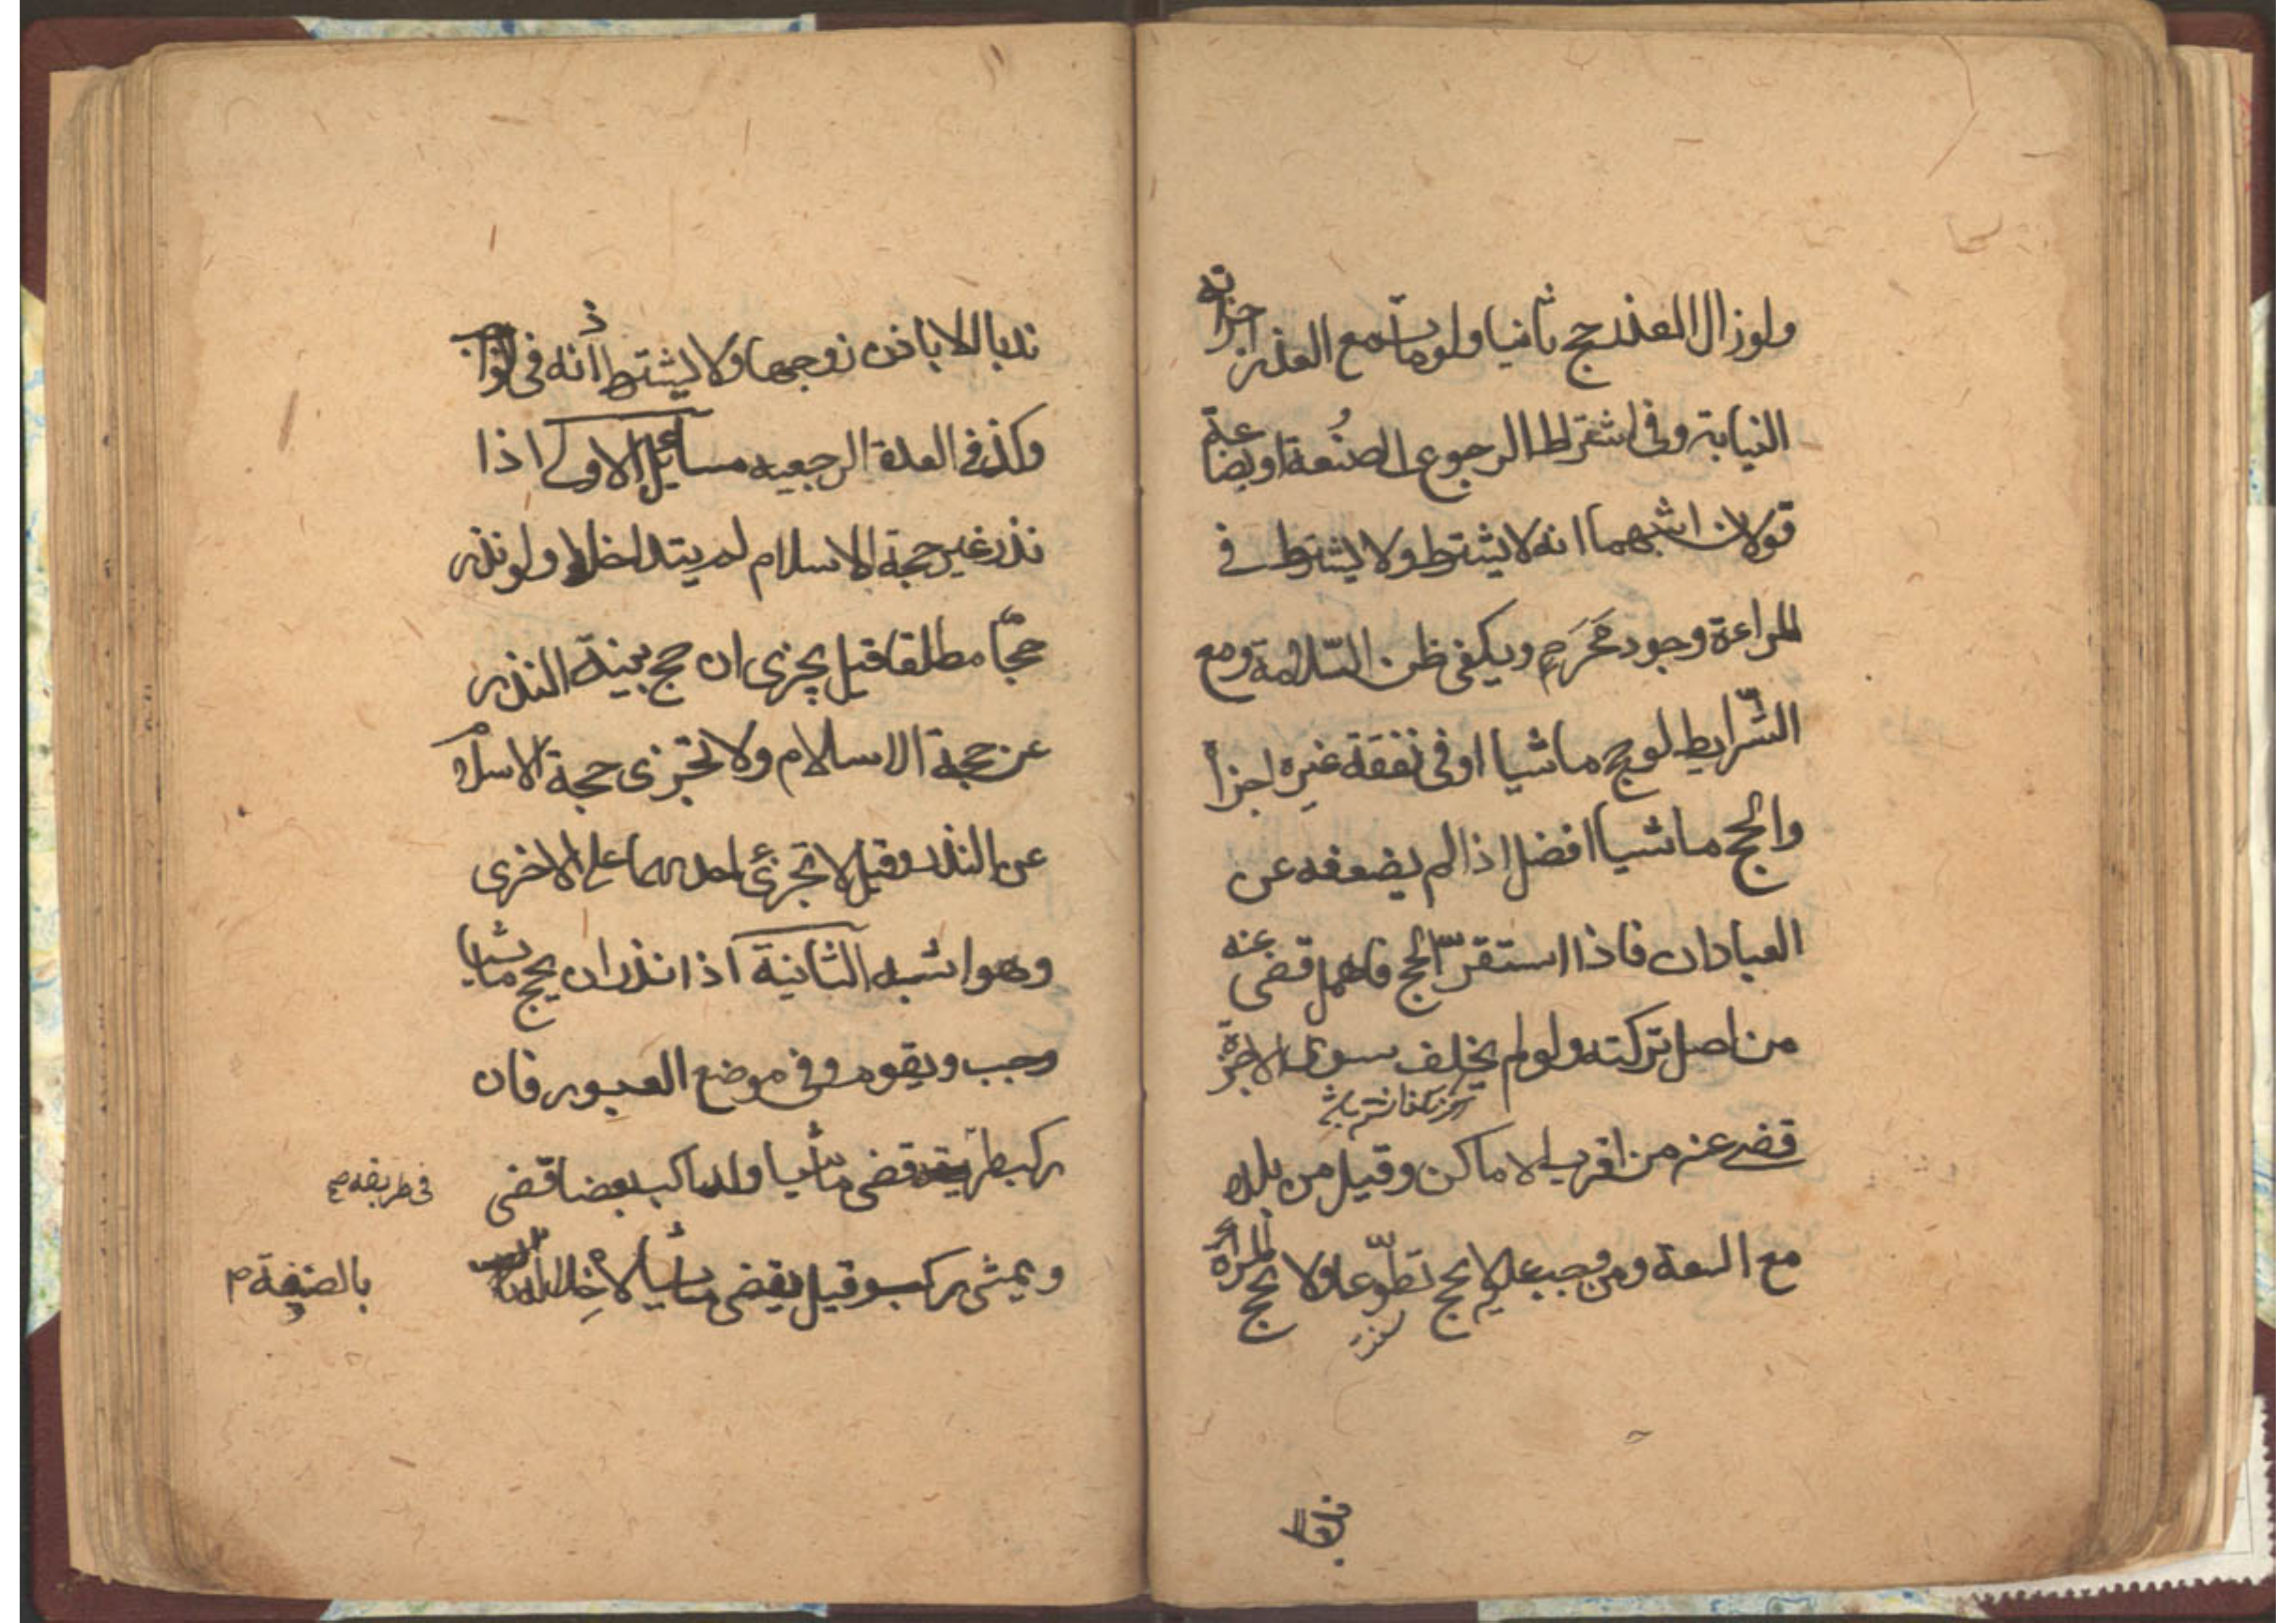 ولو زال العذر حج ثانيا ولو مات مع العذر اجزاته
النيابة وفي اشتراط الرجوع الى صنعة او بضاعة
قولان اشبهما انه لا يشترط ولا يشترط في
المراءة وجود محرم ويكفي ظن السّلامة ومع
الشّرايط لو حج ماشيا او في نفقة غيره اجزأ
والحج ماشيا افضل اذا لم يضعفه عن
العبادات فاذا استقرّ الحج فاهمل قضى عنه
من اصل تركته ولو لم يخلف سوى الاجرة
قضى عنه من اقرب الاماكن وقيل من بلده
مع السعة ومن وجب عليه لا يحج تطوّعا ولا تحج المراة
ندبا الا باذن زوجها ولا يشترط اذنه في الواجب
وكذا في العدة الرجعيه مسايل الاولى اذا
نذر غير حجة الاسلام لم يتداخلا ولو نذر
حجّا مطلقا قيل يجزى ان حج بنية النذر
عن حجة الاسلام ولا تجزى حجة الاسلام
عن النذر وقيل لا تجزئ احديهما عن الاخرى
وهو اشبه الثانية اذا نذر ان يحج ماشيا
وجب ويقوم في موضع العبور فان
ركب طريقه قضى ماشيا ولو ركب بعضا قضى
في طريقه
ويمشى ركب وقيل يقضى ماشيا لاخلاله
بالصفة